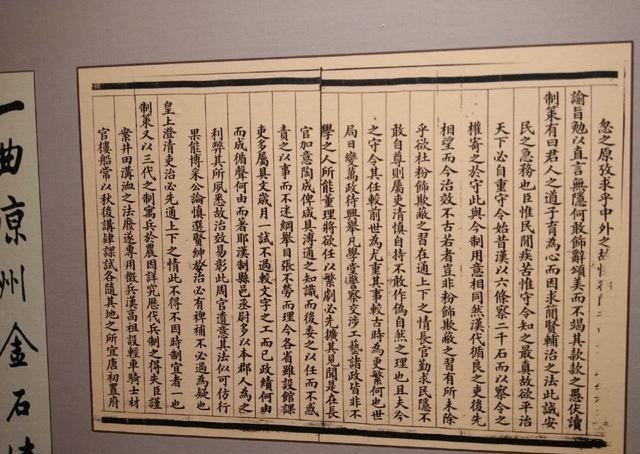 忽之原攷求乎中外之故
諭旨勉以直言無隱何敢飾辭頌美而不竭其款款之愚伏讀
制策有曰君人之道子育為心而因求簡賢輔治之法此誠安
民之急務也臣惟民間疾苦惟守令知之最真故欲平治
天下必自重守令始昔漢以六條察二千石而以察令之
權寄之於守此與今制用意相同然漢代循良之吏後先
相望而今治效不古若者豈非粉飾欺蔽之習有所未除
乎欲杜粉飾欺蔽之習在通上下之情長官勤求民隱不
敢自尊則屬吏清慎自持不敢作偽自然之理也且夫今
之守令其任較前世為尤重其事較古時為更繁何也世
局日變萬政待興舉凡學堂警察交涉工藝諸政皆非不
學之人所能董理將欲任以繁劇必先擴其見聞是在長
官加意陶成俾咸具溥通之知識而後委之以任而不惑
責之以事而不迷綱舉目張不勞而理今各省雖設館課
吏多屬具文歲月一試不過較文字之工而已政績何由
而成循聲何由而著耶漢制縣邑丞尉多以本郡人為之
利弊其所夙悉故治效易彰此周官遺意其法似可仿行
果能博采公論慎選賢紳於治必有裨補不必過為疑也
皇上澄清吏治必先通上下之情此不得不因時制宜者一也
制策又以三代之制寓兵於農因詳究歷代兵制之得失臣謹
案井田溝洫之法廢遂專用徵兵漢高祖設輕車騎士材
官樓船常以秋後講肄課試各隨其地之所宜唐初置府
一曲涼州金石